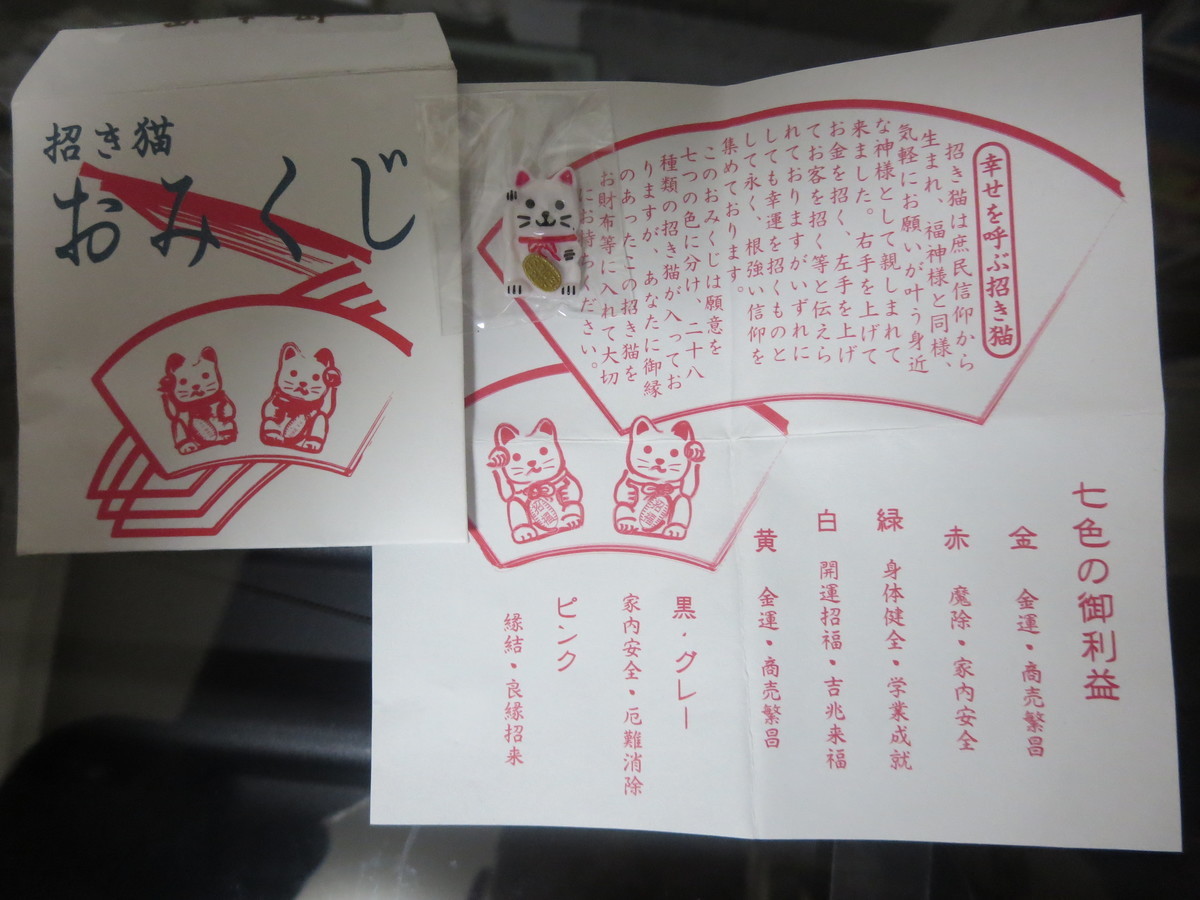 招き猫
おみくじ
幸せを呼ぶ招き猫
招き猫は庶民信仰から
生まれ、福神様と同様、
気軽にお願いが叶う身近
な神様として親しまれて
来ました。右手を上げて
お金を招く、左手を上げ
てお客を招く等と伝えら
れておりますがいずれに
しても幸運を招くものと
して永く、根強い信仰を
集めております。
このおみくじは願意を
七つの色に分け、二十八
種類の招き猫が入ってお
りますが、あなたに御縁
のあったこの招き猫を
お財布等に入れて大切
にお持ちください。
七色の御利益
金 金運・商売繁昌
赤 魔除・家内安全
緑 身体健全・学業成就
白 開運招福・吉兆来福
黄 金運・商売繁昌
黒・グレー
家内安全・厄難消除
ピンク
縁結・良縁招来